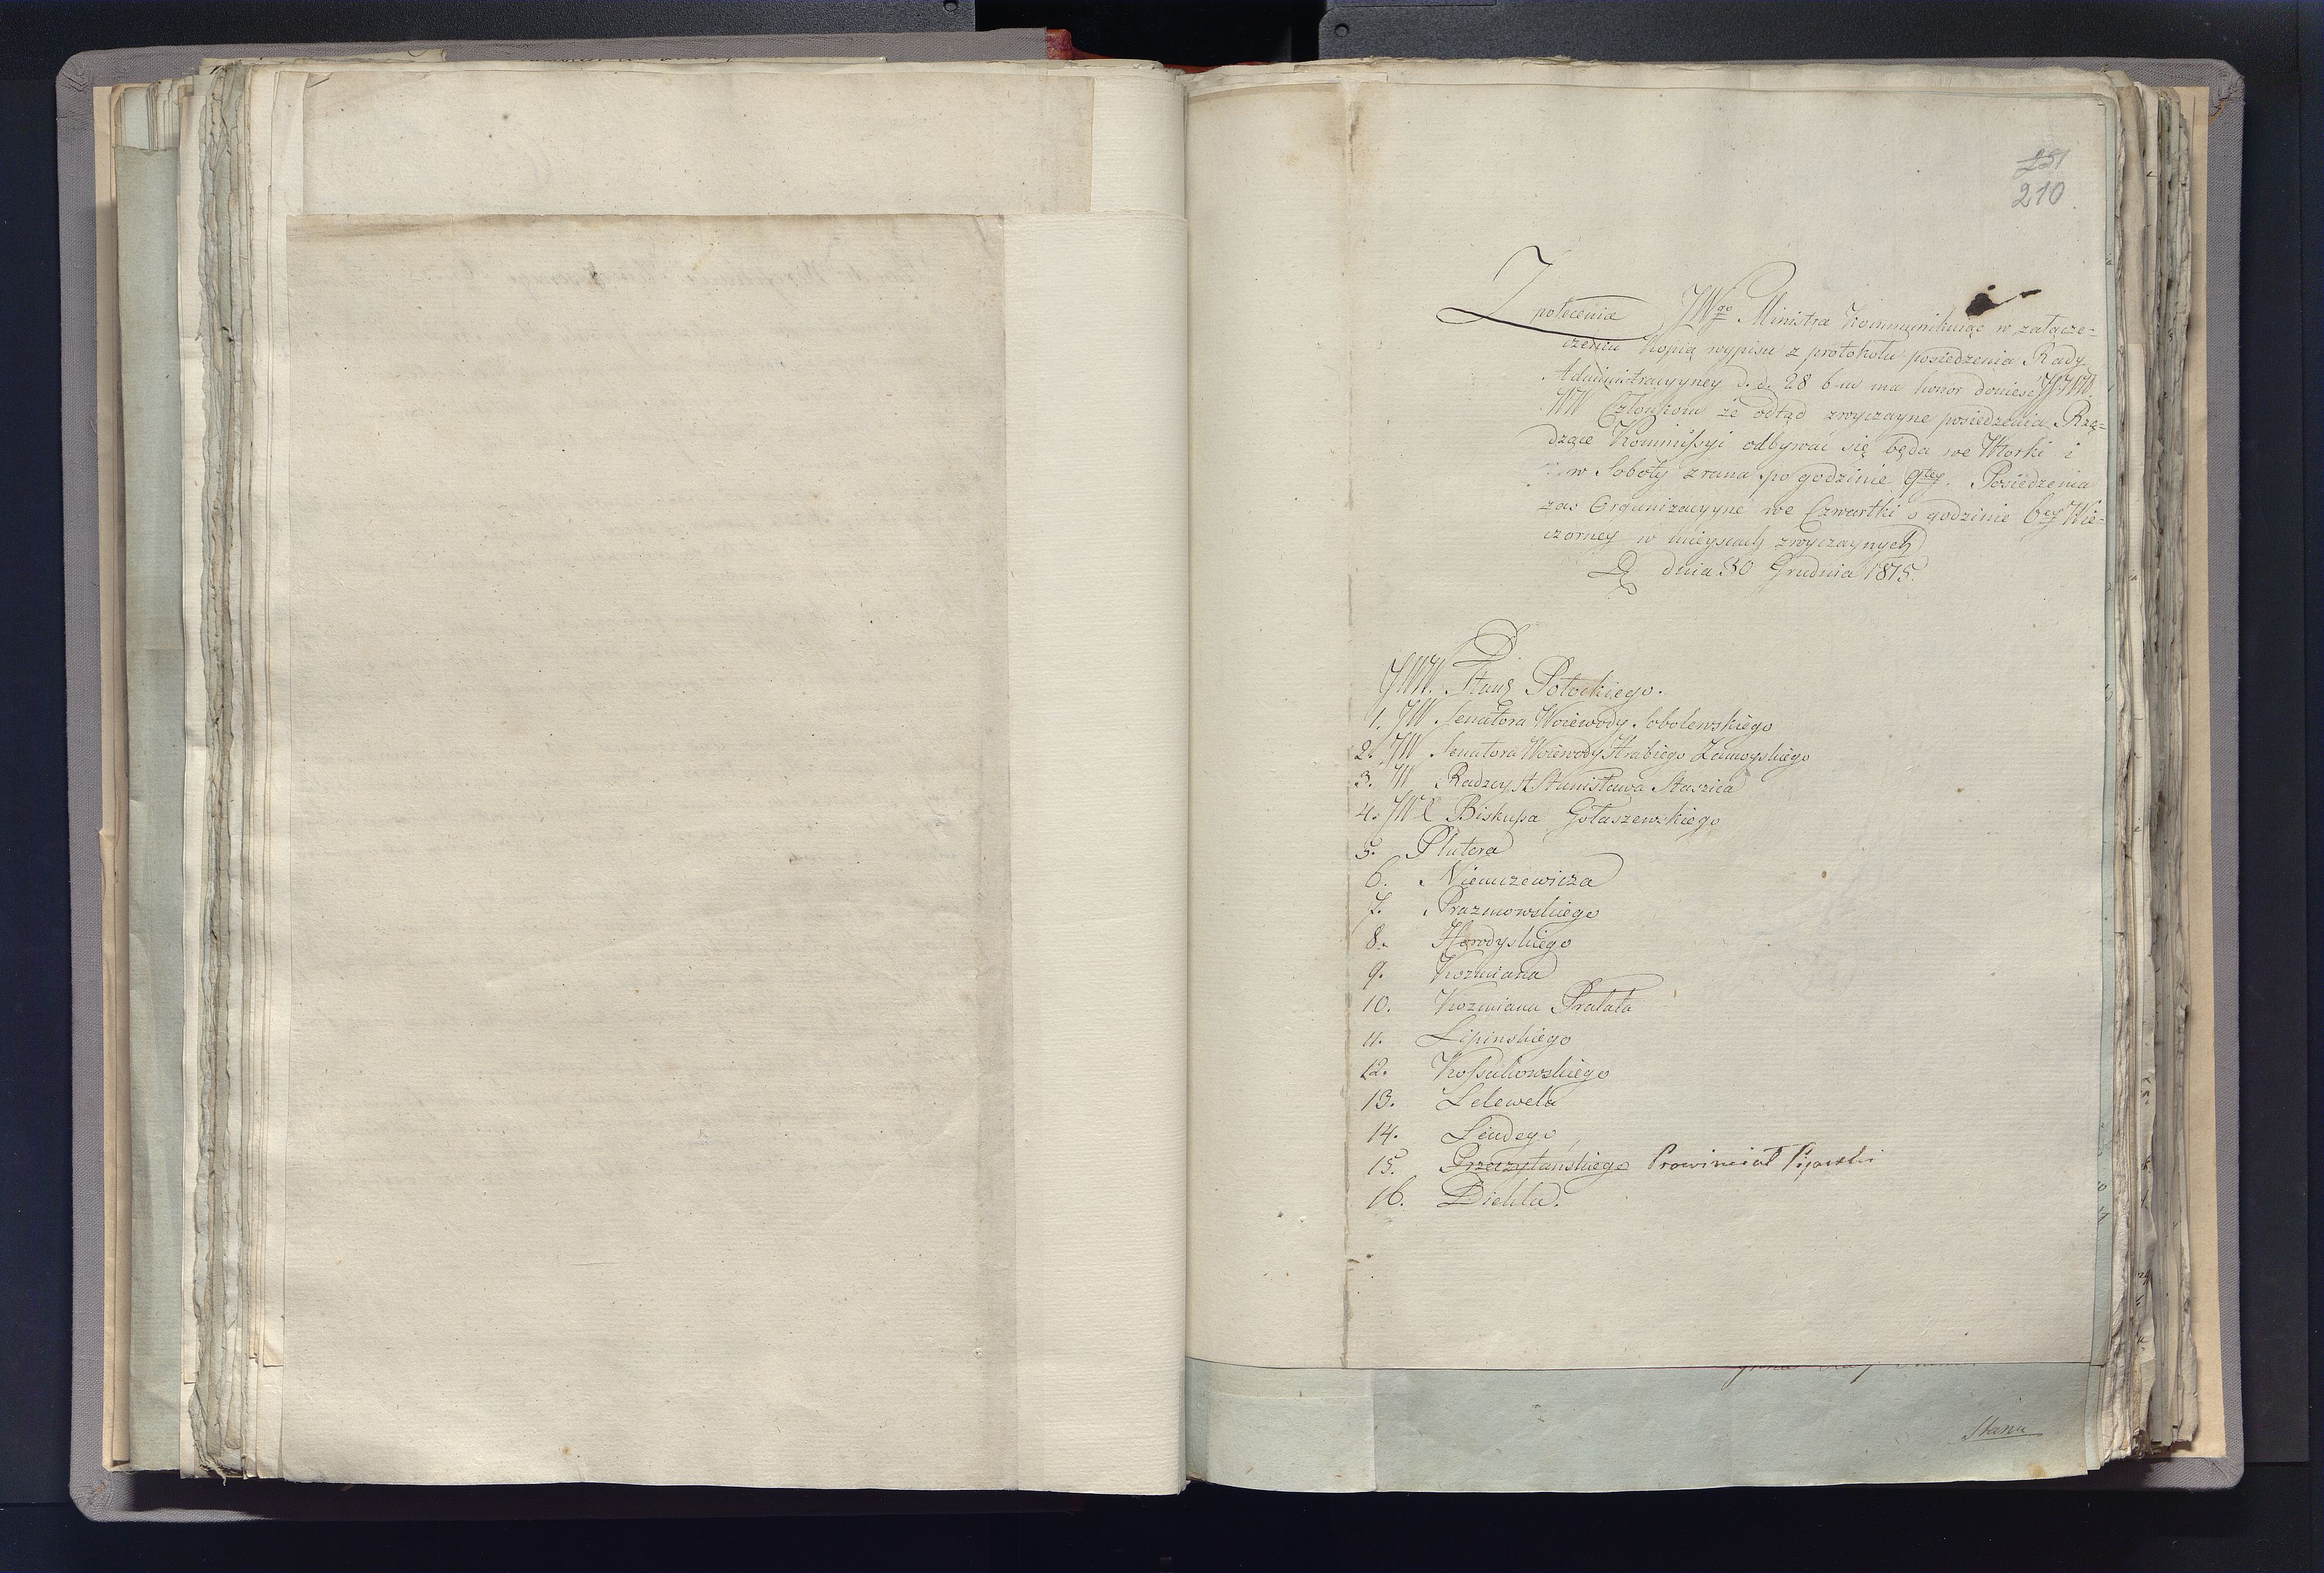 251
210
Z polecenia JWgo Ministra kommunikuiąc w załącze=
czeniu kopią wypisu z protokołu posiedzenia Rady
Administracyyney d. d. 28 b m ma honor donieść JJWW.
WW Członkom że odtąd zwyczayne posiedzenia Rzą=
dzące Kommissyi odbywać się będą we Wtorki i
w Soboty zrana po godzinie 9tey. Posiedzenia
zas Organizacyyne we Czwartki o godzinie 6ey Wie=
czorney w mieyscach zwyczaynych
dnia 30 Grudnia 1815.
JWW. Stan: Potockiego.
1. JW Senatora Woiewody Sobolewskiego
2. JW Senatora Woiewody Hrabiego Zamoyskiego
3. W Radzcy St Stanisława Staszica
4. JWX Biskupa Gołaszewskiego
5. Platera
6. Niemczewicza
7. Prazmowskiego
8. Horodyskiego
9. Kozmiana
10. Kozmiana Prałata
11. Lipinskiego
12. Kossakowskiego
13. Lelewela
14. Lindego
15. Przeczytanskiego Prowincial Pijarski
16. Diehla.
Stanu